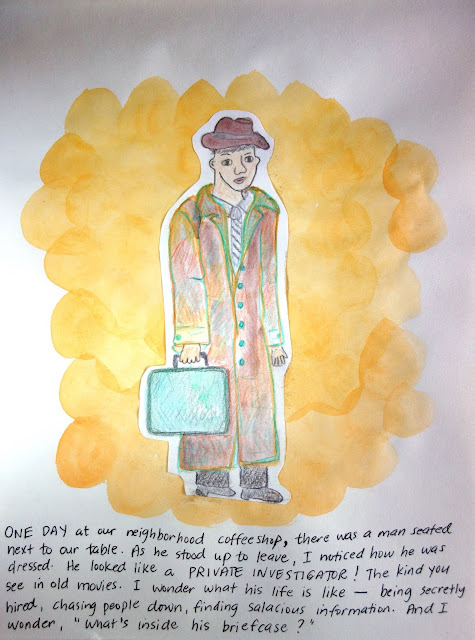 ONE DAY at our neighborhood coffeeshop, there was a man seated
next to our table. As he stood up to leave, I noticed how he was
dressed. He looked like a PRIVATE INVESTIGATOR! The kind you
see in old movies. I wonder what his life is like — being secretly
hired, chasing people down, finding salacious information. And I
wonder, "What's inside his briefcase?"